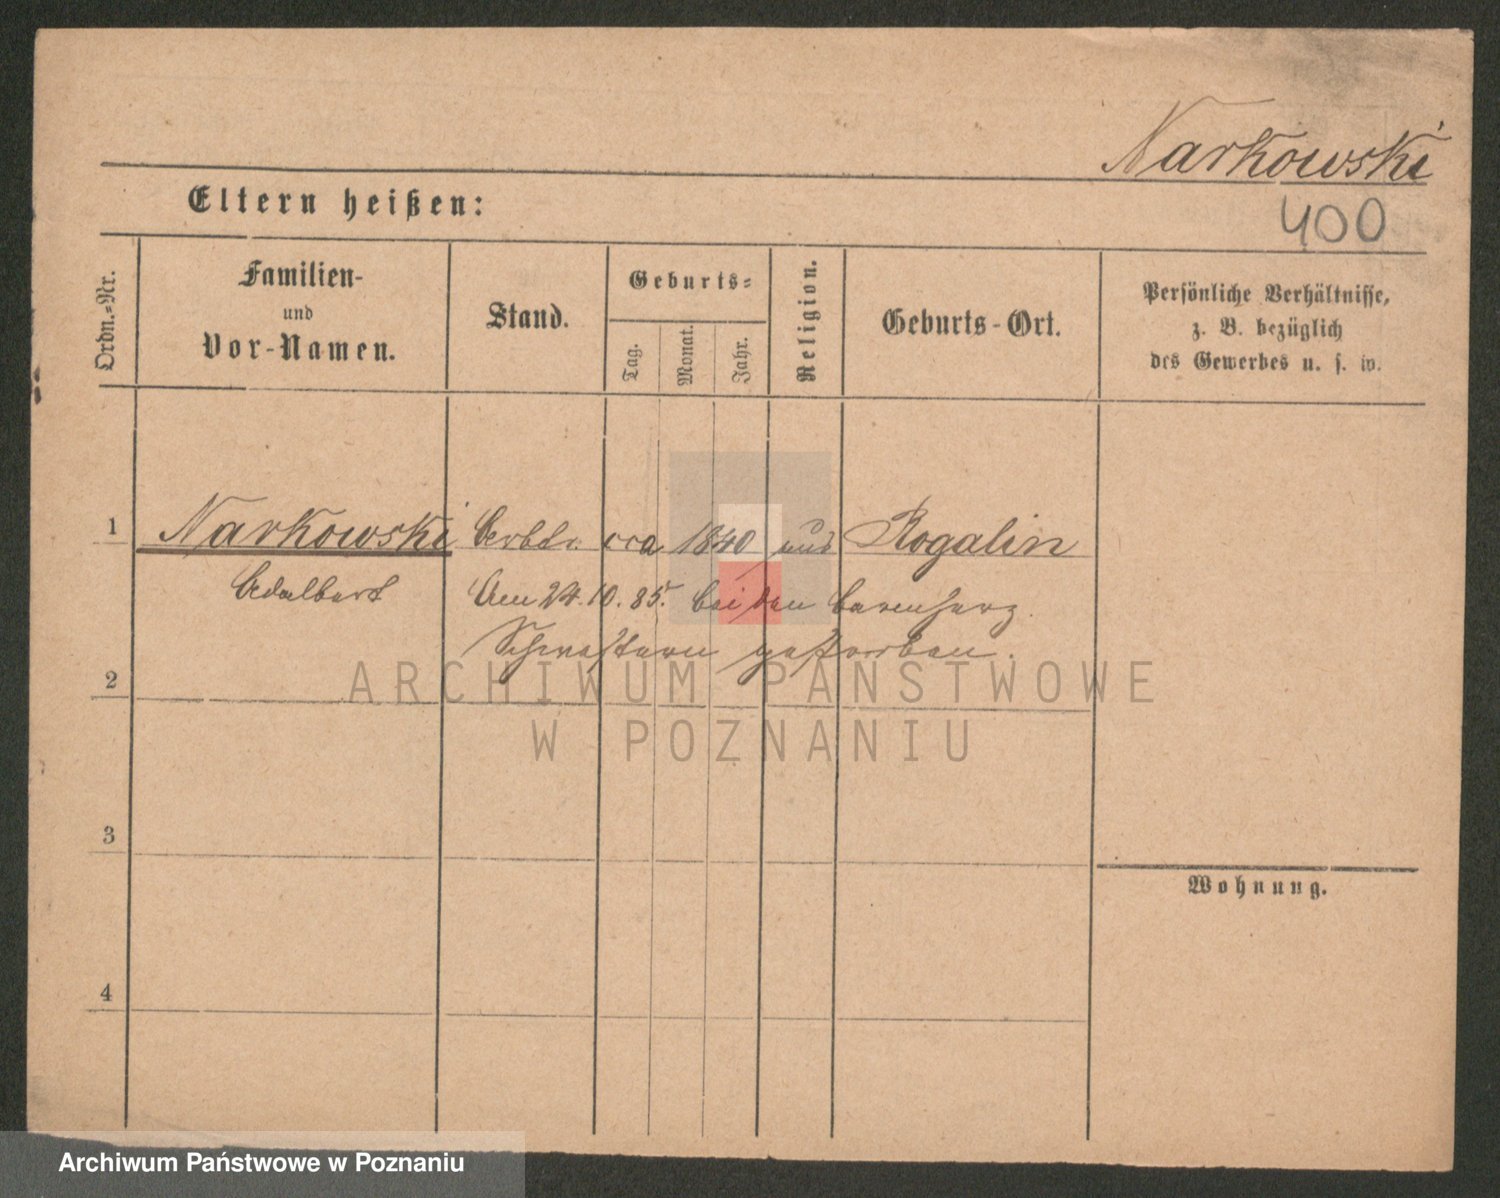 Narkowski
Eltern heißen:
400
Ordn.-Nr.
Familien-
und
Vor-Namen.
Stand.
Geburts-
Tag.
Monat.
Jahr.
Religion.
Geburts-Ort.
Persönliche Verhältnisse,
z. B. bezüglich
des Gewerbes u. s. w.
1 Narkowski Arbtr. cca 1840 aus Rogalin
Adalbert Am 24.10.85. bei den barmherz.
Schwestern gestorben.
2
3
4
Wohnung.
ARCHIWUM PAŃSTWOWE
W POZNANIU
Archiwum Państwowe w Poznaniu